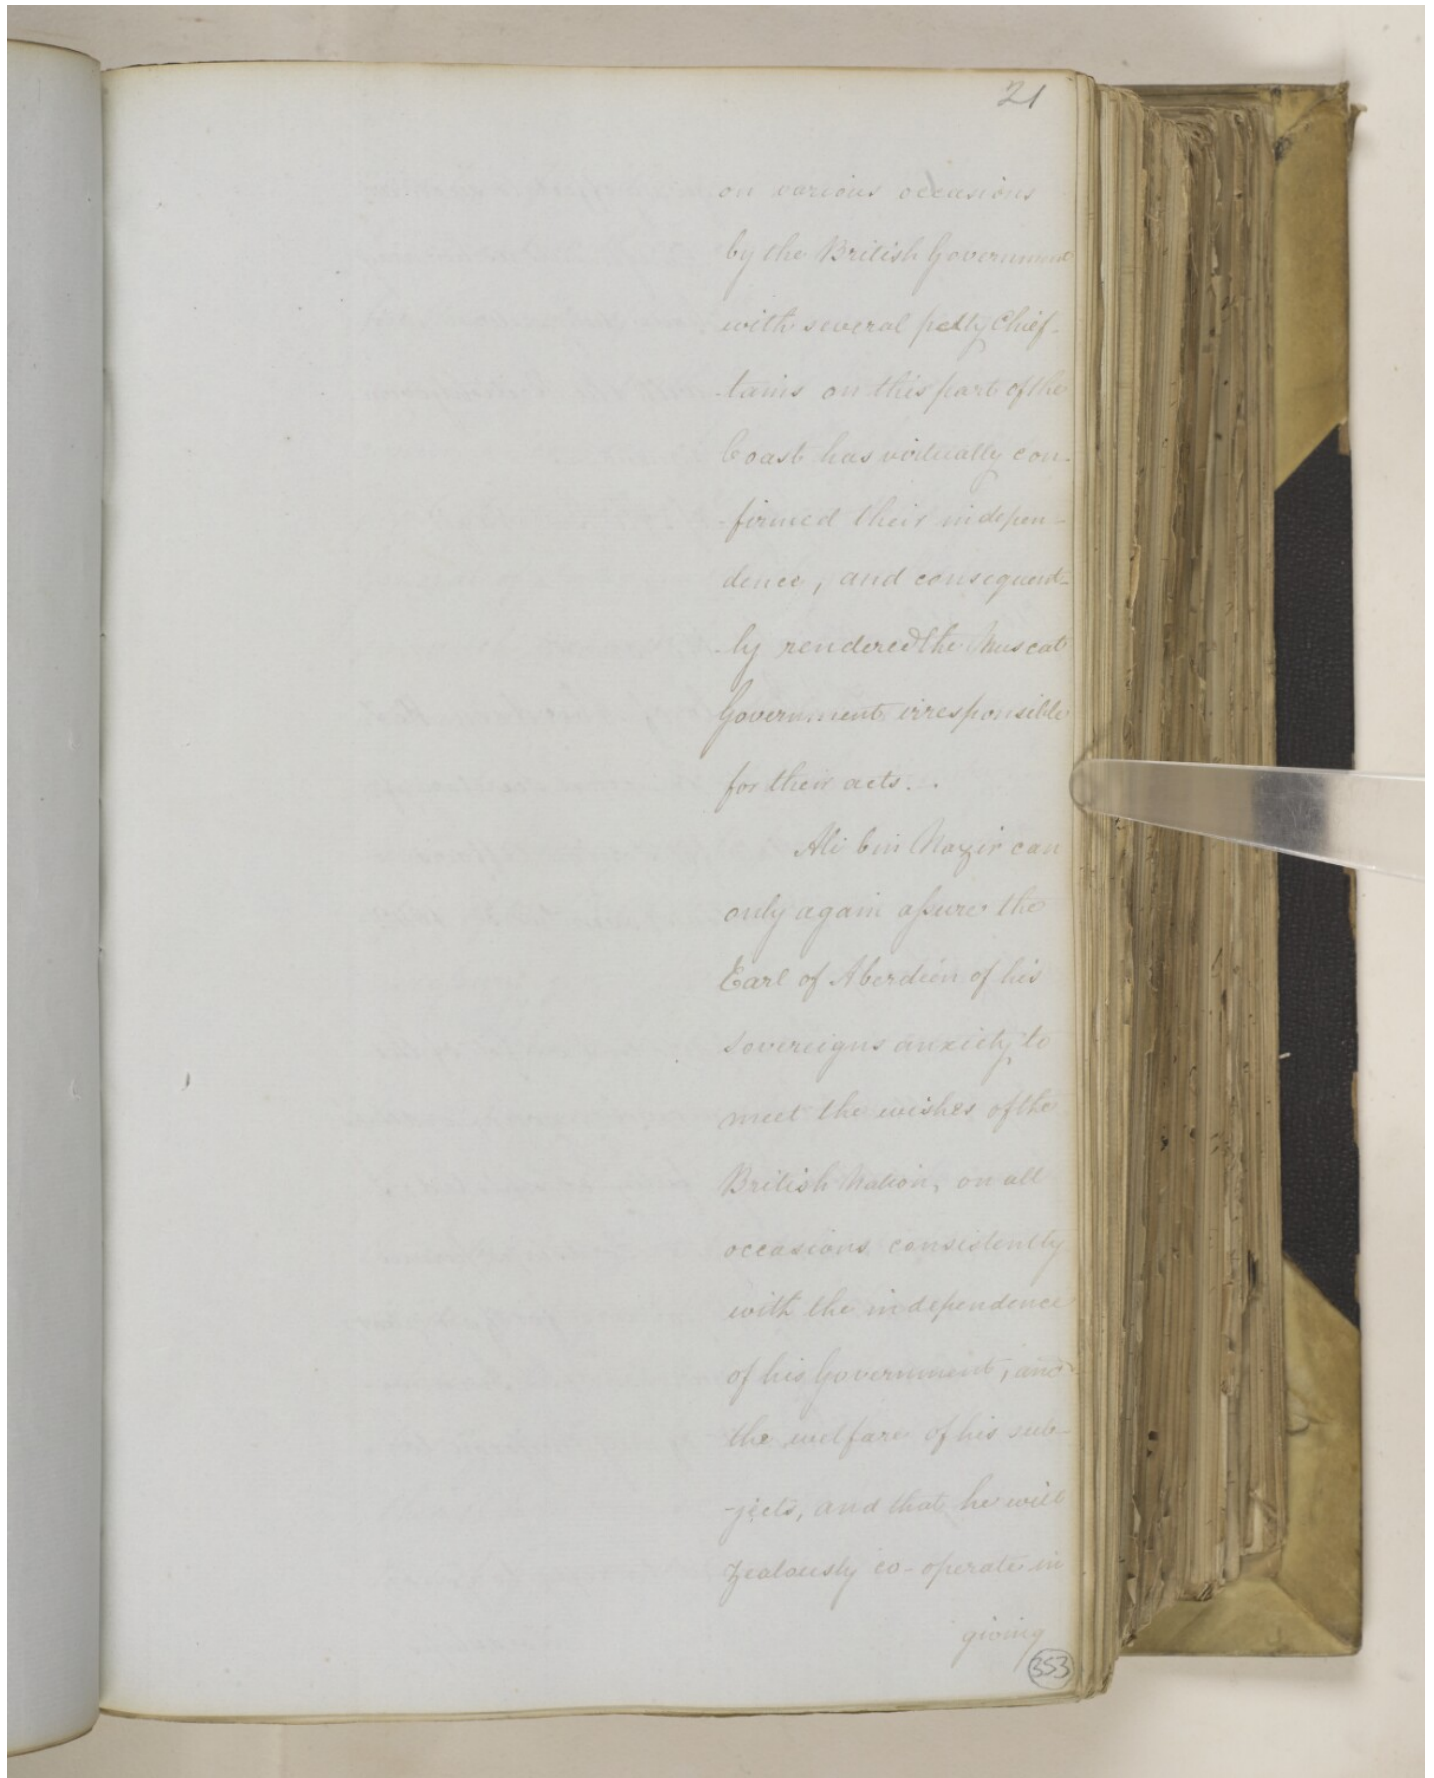 21
on various occasions
by the British Government
with several petty Chief-
-tains on this part of the
Coast has virtually con-
-firmed their indepen-
dence, and consequent-
-ly rendered the Muscat
Government irresponsible
for their acts. .
Ali bin Nazir can
only again assure the
Earl of Aberdeen of his
Sovereigns anxiety to
meet the wishes of the
British Nation, on all
occasions consistently
with the independence
of his Government, and
the welfare of his sub-
-jects, and that he will
zealously co-operate in
giving
353